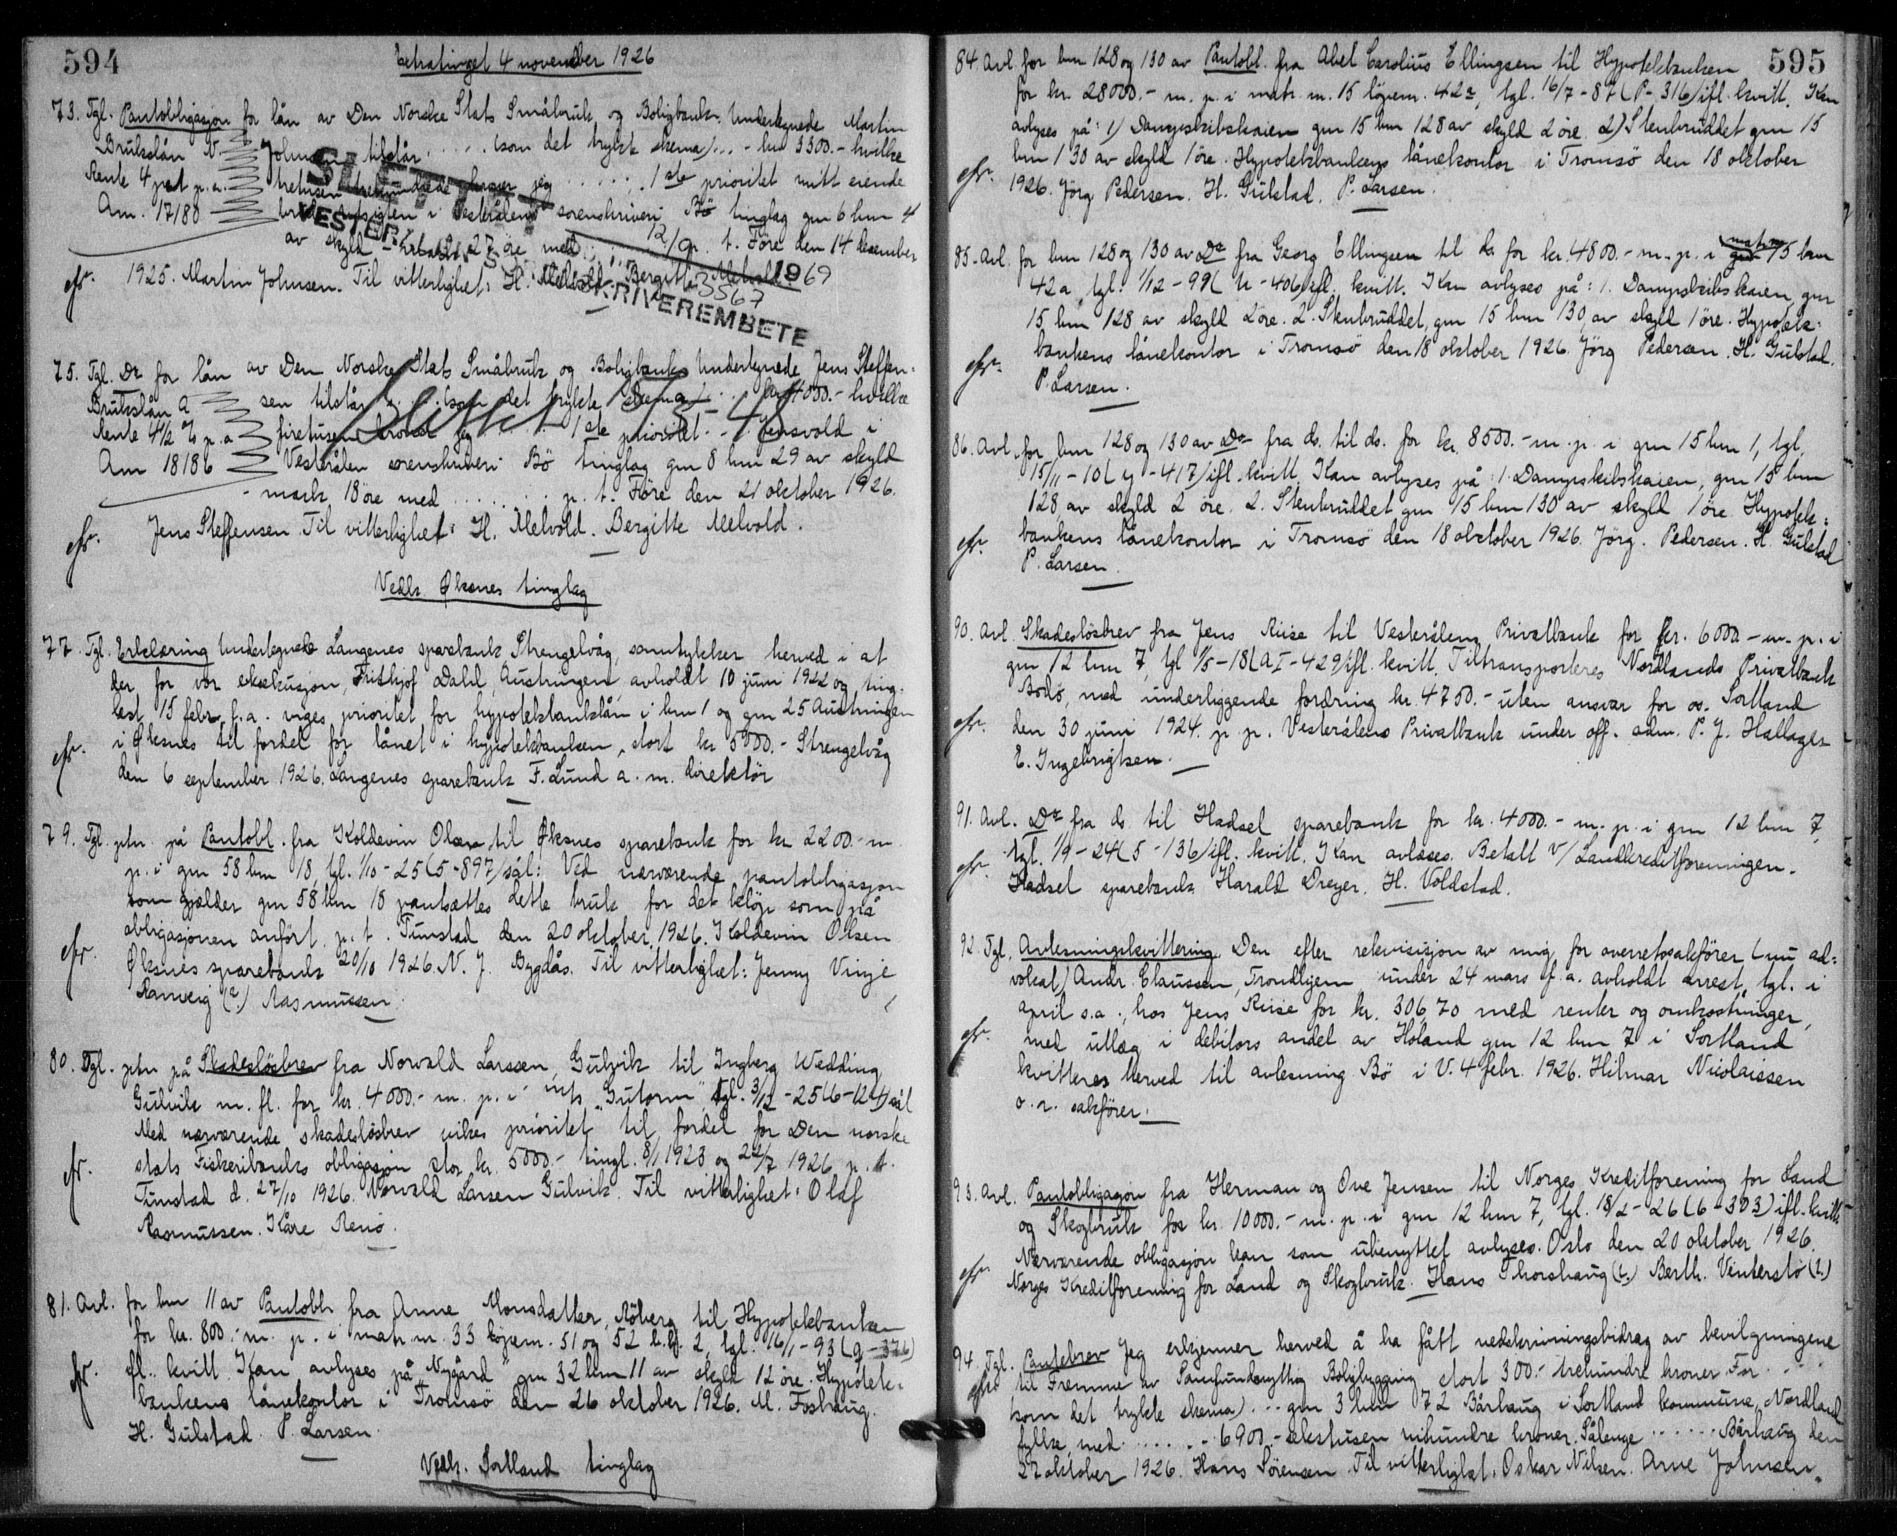 594
Ekstratinget 4 november 1926
73. Tgl. Pantobligasjon for lån av Den Norske Stats Småbruk og Boligbank. Undertegnede Martin
Brukslån N. Johnsen tilstår ..... (som det trykte skema) ... - kr. 3300.- hvilke
Rente 4 pct p.a. tretusen trehundrede kroner jeg ..... 1ste prioritet mitt eiende
Am. 17180 i Vesterålens sorenskriveri Bø tinglag gnr 6 bnr 4
av skyld - mark 27 øre med ..... p. t. Føre den 14 desember
cfr. 1925. Martin Johnsen. Til vitterlighet: H. Melvold. Bergitte Melvold.
SLETTET
12/9 1969
3567
VESTERÅLEN SORENSKRIVEREMBETE
75. Tgl. Do for lån av Den Norske Stats Småbruk og Boligbank. Undertegnede Jens Steffen-
Brukslån a sen tilstår ..... (som det trykte skema) ... kr 4000.- hvilke
Rente 4 1/2 % p.a. firetusen kroner jeg ..... 1ste prioritet .. Jensvold i
Am 18186 Vesterålen sorenskriveri Bø tinglag gnr 8 bnr 29 av skyld
- mark 18 øre med ........ p. t. Føre den 21 oktober 1926.
cfr. Jens Steffensen. Til vitterlighet: H. Melvold. Bergitte Melvold.
Slettet
Vedk Øksnes tinglag
77. Tgl. Erklæring Undertegnede Langenes sparebank Strengelvåg, samtykker herved i at
der for vor eksekusjon, Frithjof Dahl, Austringen, avholdt 10 juni 1922 og ting-
lest 15 febr. f.a. viges prioritet for hypotekbanklån i bnr 1 og gnr 25 Austringen
cfr. i Øksnes til fordel for lånet i hypotekbanken, stort kr 5000.- Strengelvåg
den 6 september 1926. Langenes sparebank F. Lund a. m. direktør
79. Tgl. ptn. på Pantobl. fra Koldevin Olsen til Øksnes sparebank for kr. 2200.- m.
p. i gnr 58 bnr 18, tgl. 1/10 - 25 (5 - 897) sål: Ved nærværende pantobligasjon
som gjelder gnr 58 bnr 18 pantsættes dette bruk for det beløp som på
obligasjonen anført. p. t. Tunstad den 20 oktober 1926. Koldevin Olsen
cfr. Øksnes sparebank 20/10 1926. N. J. Bygdås. Til vitterlighet: Jenny Vinje
Ranveig (?) Rasmussen.
80. Tgl. ptn på Skadesløsbrev fra Norvald Larssen, Gulvik til Ingberg Wedding
Gulvik m. fl. for kr. 4000.- m. p. i m/k "Gutorm", tgl. 3/12 - 25 (6 - 124) sål
Med nærværende skadesløsbrev vikes prioritet til fordel for Den norske
stats Fiskeribanks obligasjon stor kr. 5000.- tingl. 8/1 1923 og 22/7 1926 p. t.
cfr. Tunstad d. 27/10 1926. Norvald Larsen Gulvik. Til vitterlighet: Olaf
Rasmussen. Kåre Renø.
81. Avl. for bnr 11 av Pantobl. fra Anne Monsdatter, Röberg til Hypotekbanken
for kr. 800.- m. p. i matr. nr. 33 löpenr. 51 og 52 2, tgl. 16/1 - 93 (9 - 326)
cfr. ifl. kvitt. Kan avlyses på "Nygård" gnr 32 bnr 11 av skyld 12 øre. Hypotek-
bankens lånekontor i Tromsø den 26 oktober 1926. M. Foshaug.
H. Gulstad. P. Larsen.
Vedk. Sortland tinglag
595
84. Avl. for bnr 128 og 130 av Pantobl. fra Abel Carolius Ellingsen til Hypotekbanken
for kr. 28000.- m. p. i matr. nr. 15 löpenr. 42a, tgl. 16/7 - 87 (P - 316) ifl. kvitt. Kan
avlyses på: 1) Dampskibskaien gnr 15 bnr 128 av skyld 2 øre. 2) Stenbruddet gnr 15
bnr 130 av skyld 1 øre. Hypotekbankens lånekontor i Tromsø den 18 oktober
cfr. 1926. Jörg Pedersen. H. Gulstad. P. Larsen.
85. Avl. for bnr 128 og 130 av Do fra Georg Ellingsen til ds. for kr. 4800.- m. p. i matr. 15 lnr
42a, tgl. 1/12 - 99 (U - 406) ifl. kvitt. Kan avlyses på: 1. Dampskibskaien, gnr
15 bnr 128 av skyld 2 øre. 2. Stenbruddet, gnr 15 bnr 130, av skyld 1 øre. Hypotek-
cfr. bankens lånekontor i Tromsø den 18 oktober 1926. Jörg Pedersen. H. Gulstad.
P. Larsen.
86. Avl. for bnr 128 og 130 av Do fra ds. til ds. for kr. 8500.- m. p. i gnr 15 bnr 1, tgl.
15/11 - 10 (Y - 417) ifl. kvitt. Kan avlyses på: 1. Dampskibskaien, gnr 15 bnr
128 av skyld 2 øre. 2. Stenbruddet gnr 15 bnr 130 av skyld 1 øre. Hypotek-
cfr. bankens lånekontor i Tromsø den 18 oktober 1926. Jörg. Pedersen. H. Gulstad
P. Larsen.
90. Avl. Skadesløsbrev fra Jens Riise til Vesterålens Privatbank for kr. 6000.- m. p. i
gnr 12 bnr 7, tgl 1/5 - 18 (AI - 429) ifl. kvitt. Tiltransporteres Nordlands Privatbank
Bodø, med underliggende fordring kr. 4750.- uten ansvar for os. Sortland
cfr. den 30 juni 1924. p. p. Vesterålens Privatbank under off. adm. P. J. Hallager
E. Ingebrigtsen.
91. Avl. Do fra ds til Hadsel sparebank for kr. 4000.- m. p. i gnr 12 bnr 7,
tgl. 1/9 - 24 (5 - 136) ifl. kvitt. Kan avlæses. Betalt v/ Landkreditforeningen.
cfr. Hadsel sparebank Harald Dreyer. H. Voldstad.
92. Tgl. Avlesningskvittering. Den efter rekvisisjon av mig for overretssakfører (nu ad-
vokat) Andr. Claussen, Trondhjem, under 24 mars f. a. avholdt arrest, tgl. i
april s.a., hos Jens Riise for kr. 306,70 med renter og omkostninger,
cfr. med utlæg i debitors andel av Holand gnr 12 bnr 7 i Sortland
kvitteres herved til avlesning. Bø i V. 4 febr. 1926. Hilmar Nicolaissen
o. r. sakfører.
93. Avl. Pantobligasjon fra Herman og Ove Jensen til Norges Kreditforening for Land
og Skogbruk for kr. 10000.- m. p. i gnr 12 bnr 7, tgl. 18/2 - 26 (6 - 303) ifl. kvitt.
Nærværende obligasjon kan som ubenyttet avlyses. Oslo den 20 oktober 1926.
cfr. Norges Kreditforening for Land og Skogbruk. Hans Thorshaug (?) Berth. Vinterstø (?)
94. Tgl. Pantebrev Jeg erkjenner herved å ha fått nedskrivningsbidrag av bevilgningene
cfr til Fremme av Samfundsnyttig Boligbygging stort 300.- trehundre kroner For ...
(som det trykte skema) ... gnr 3 bnr 72 Bårhaug i Sortland kommune Nordland
fylke med ...... - 6900.- sekstusen nihundre kroner. Sålenge ..... Bårhaug den
27 oktober 1926. Hans Sørensen. Til vitterlighet: Oskar Nilsen. Arne Johnsen.